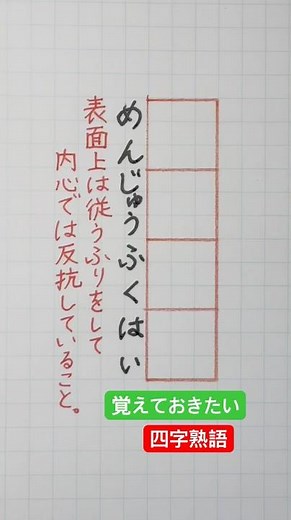 めんじゅうふくはい
表面上は従うふりをして
内心では反抗していること。
覚えておきたい
四字熟語